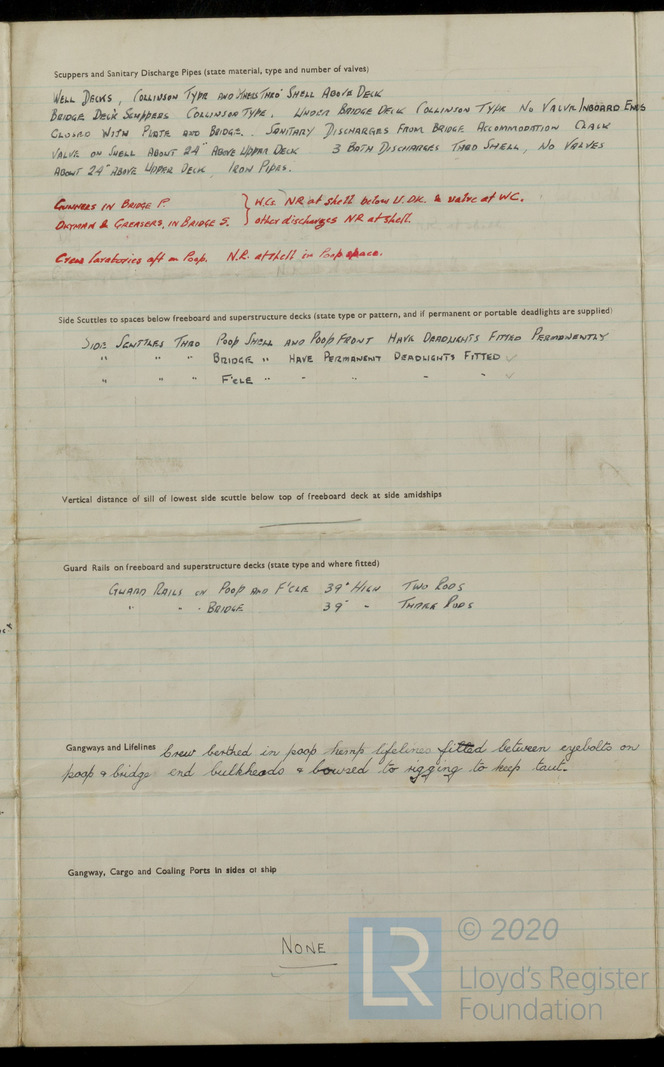 Scuppers and Sanitary Discharge Pipes (state material, type and number of valves)
WELL DECKS, COLLINSON TYPE AND THRO' SHELL ABOVE DECK
BRIDGE DECK SCUPPERS COLLINSON TYPE. UNDER BRIDGE DECK COLLINSON TYPE NO VALVE INBOARD ENDS
CLOSED WITH PLATE AND BRIDGE. SANITARY DISCHARGES FROM BRIDGE ACCOMMODATION CLACK
VALVE ON SHELL ABOUT 24" ABOVE UPPER DECK 3 BATH DISCHARGES THRO SHELL, NO VALVES
ABOUT 24" ABOVE UPPER DECK, IRON PIPES.
GUNNERS IN BRIDGE P. } W.Cs NR at shell below U. DK. & valve at WC.
& GREASERS, IN BRIDGE S. } other discharges NR at shell.
Crew lavatories aft on Poop. N.R. at shell in Poop space.
Side Scuttles to spaces below freeboard and superstructure decks (state type or pattern, and if permanent or portable deadlights are supplied)
SIDE SCUTTLES THRO POOP SHELL AND POOP FRONT HAVE DEADLIGHTS FITTED PERMANENTLY
" " " BRIDGE " HAVE PERMANENT DEADLIGHTS FITTED ✓
" " " F'CLE " " " " " ✓
Vertical distance of sill of lowest side scuttle below top of freeboard deck at side amidships
Guard Rails on freeboard and superstructure decks (state type and where fitted)
GUARD RAILS ON POOP AND F'CLE 39" HIGH TWO RODS
" " " BRIDGE 39" " THREE RODS
Gangways and Lifelines Crew berthed in poop hemp lifelines fitted between eyebolts on
poop & bridge end bulkheads & bowsed to rigging to keep taut.
Gangway, Cargo and Coaling Ports in sides of ship
NONE
LR
© 2020
Lloyd's Register
Foundation